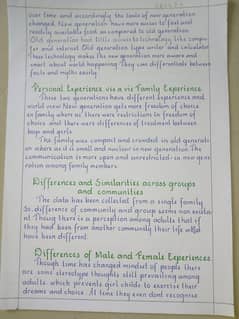 over time and accordingly the taste of new generation
changed. New generation have more access to fast and
readily available food as compared to old generation
Old generation had little access to technology like compu-
ter and internet Old generation type writer and calculator
These technology makes the new generation more aware and
smart about world happening They can differentiate between
facts and myths easily.
Personal Experience vis a vis Family Experience
These two generations have different Experience and
world view New generation gets more freedom of choice
in family where as there were restrictions in freedom of
choice and there were differences of treatment between
boys and girls
The family was compact and crowded in old generati-
on where as it is small and nuclear in new generation The
communication is more open and unrestricted in new gene
ration among family members
Differences and Similarities across groups
and communities
The data has been collected from a single family
So difference of community and group seems non exista
nt Though there is a perception among adults that if
they had been from another community their life would
have been different.
Differences of Male and Female Experiences
Though time has changed mindset of people there
are some stereotype thoughts still prevailing among
adults which prevents girl child to exercise their
dreams and choice. At time they even dont recognise